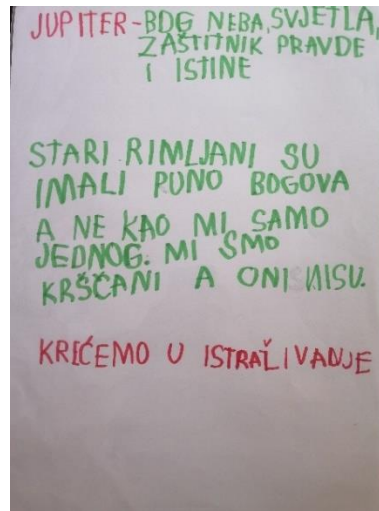 JUPITER-BOG NEBA, SVJETLA,
ZAŠTITNIK PRAVDE
I ISTINE
STARI RIMLJANI SU
IMALI PUNO BOGOVA
A NE KAO MI SAMO
JEDNOG. MI SMO
KRŠČANI A ONI NISU.
KREĆEMO U ISTRAŽIVANJE